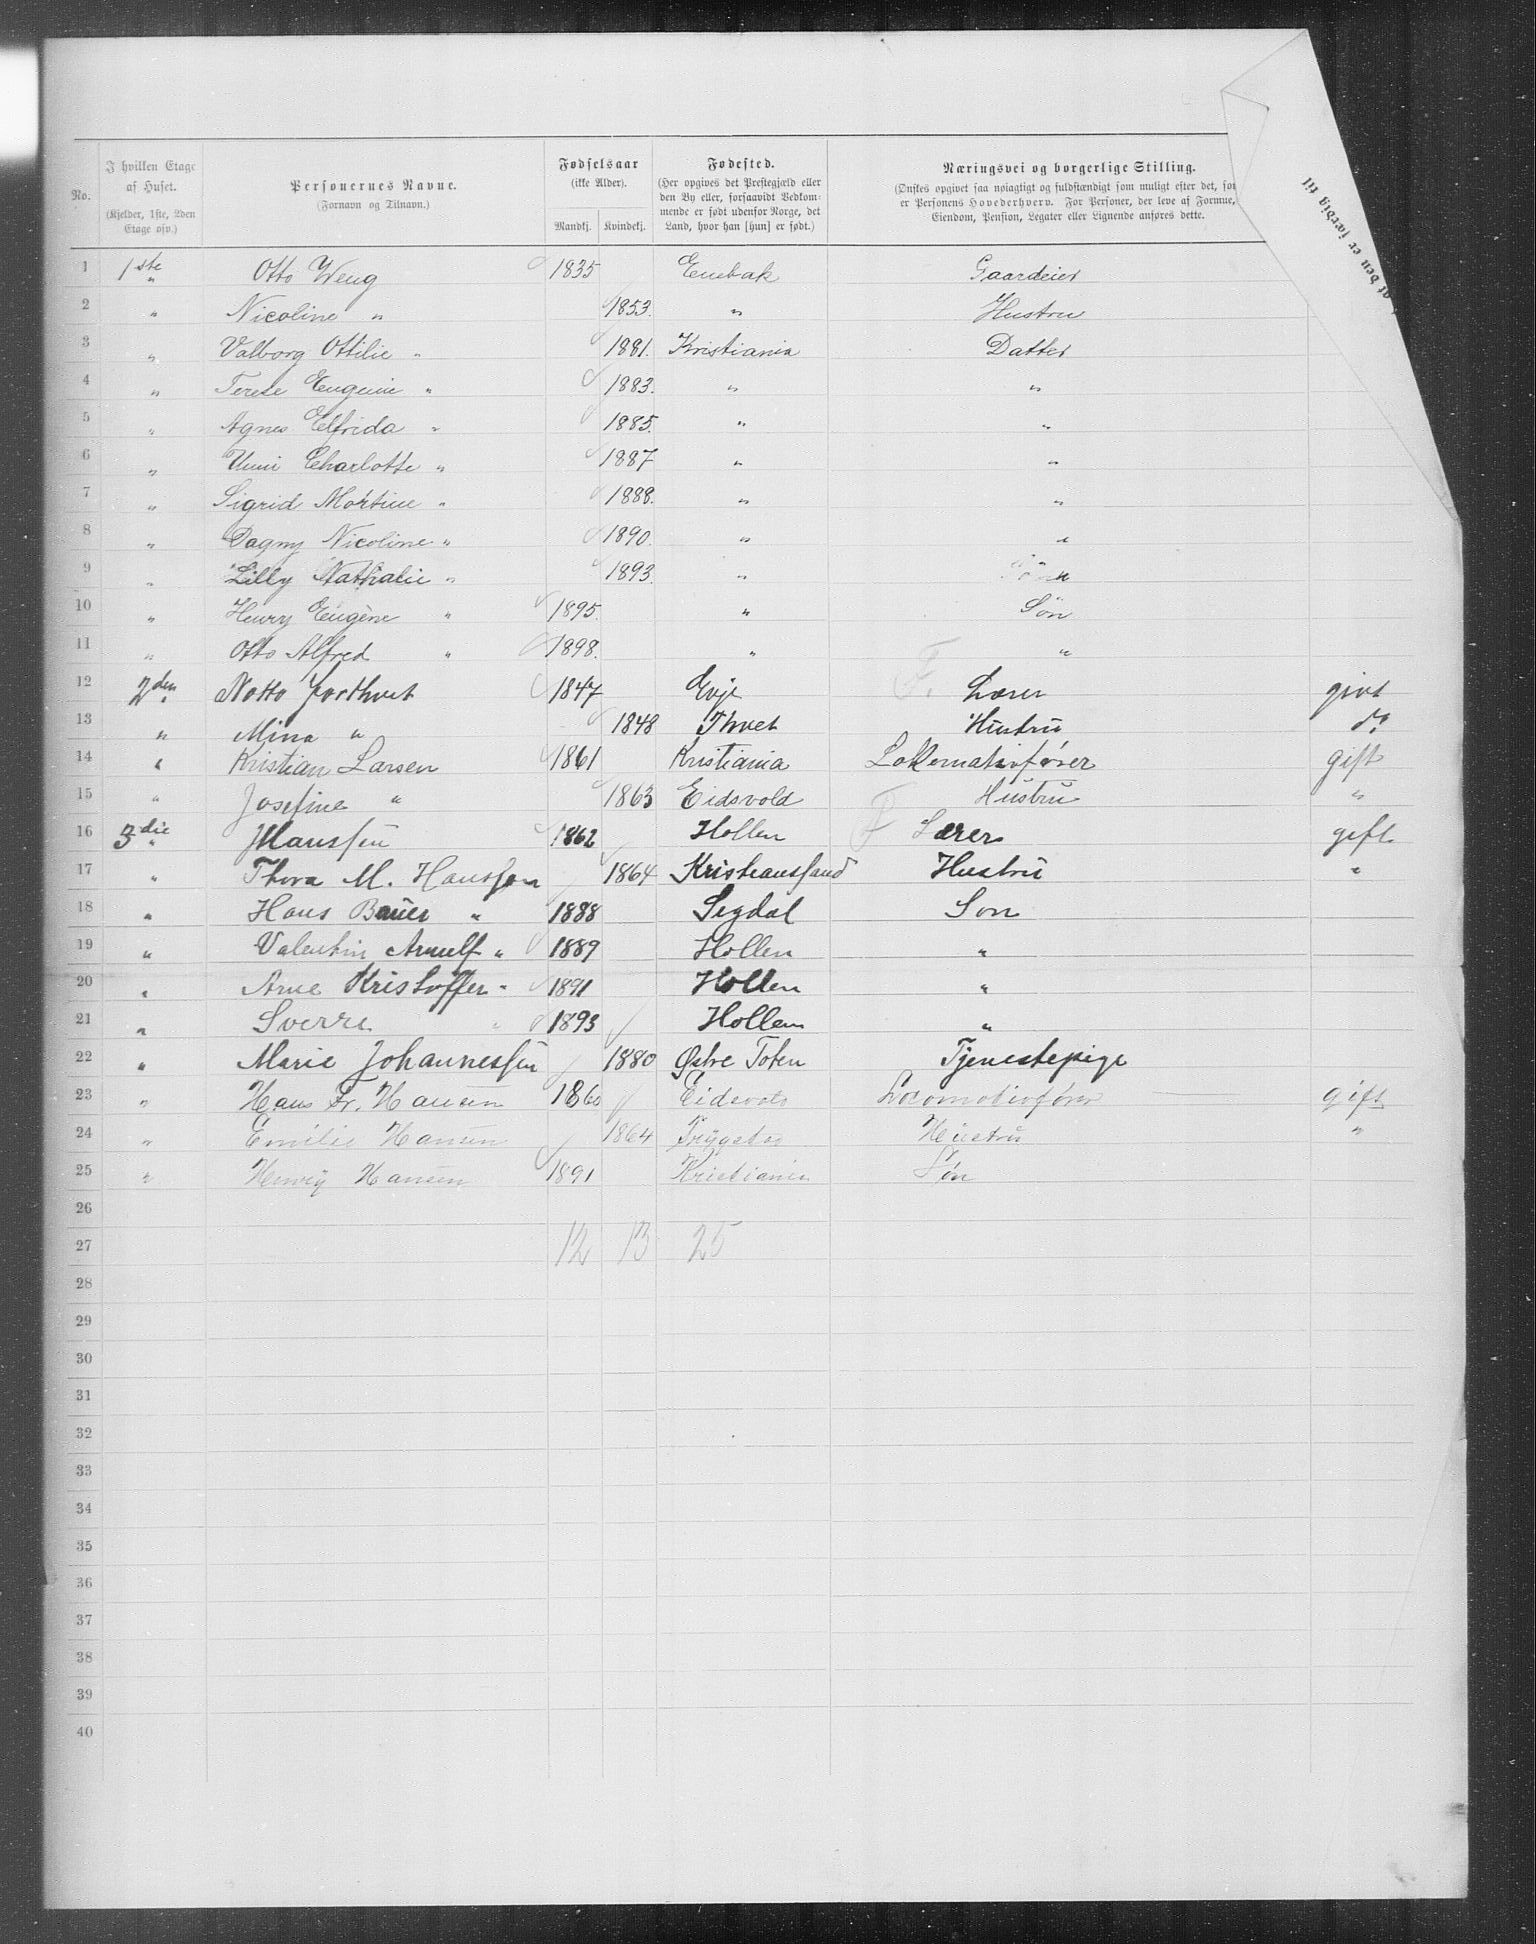 No. I hvilken Etage af Huset. (Kjelder, 1ste, 2den Etage osv.) Personernes Navne. (Fornavn og Tilnavn.) Fødselsaar (ikke Alder). Mandkj. Kvindekj. Fødested. (Her opgives det Prestegjæld eller den By eller, forsaavidt Vedkommende er født udenfor Norge, det Land, hvor han [hun] er født.) Næringsvei og borgerlige Stilling. (Ønskes opgivet saa nøiagtigt og fuldstændigt som muligt efter det, so er Personens Hovederhverv. For Personer, der leve af Formue, Eiendom, Pension, Legater eller Lignende anføres dette.
at den er færdig til
1 1ste " Otto Weng 1835 Enebak Gaardeier
2 " Nicoline " 1853. " Hustru
3 " Valborg Ottilie " 1881. Kristiania Datter
4 " Terese Eugenie " 1883. " "
5 " Agnes Elfrida " 1885. " "
6 " Unni Charlotte " 1887 " "
7 " Sigrid Martine " 1888. " "
8 " Dagny Nicoline " 1890. " "
9 " Lilly Nathalie " 1893. " "
10 " Henry Eugène " 1895. " Søn
11 " Otto Alfred " 1898. " "
12 2den " Notto 1847 Evje F. Lærer givt
13 " Mina " 1848 Thvet Hustru do
14 " Kristian Larsen 1861 Kristiania Lokomativfører gift
15 " Josefine " 1863 Eidsvold Hustru "
16 3die " J Hanssen 1862 Hollen F Lærer gift
17 " Thora M. Hanssen 1864 Kristianssand Hustru "
18 " Hans Bauer " 1888 Segdal Son
19 " Valentin Arnulf " 1889 Hollen "
20 " Arne Kristoffer " 1891 Hollen "
21 " Sverre " 1893 Hollen "
22 " Marie Johannessen 1880 Østre Toten Tjenestepige
23 " Hans Fr. Hansen 1860 Eidsvold Locomotivfører gift
24 " Emilie Hansen 1864 Trygstad Hustru "
25 " Hansen 1891 Kristiania Søn
26
27 12 13 25
28
29
30
31
32
33
34
35
36
37
38
39
40